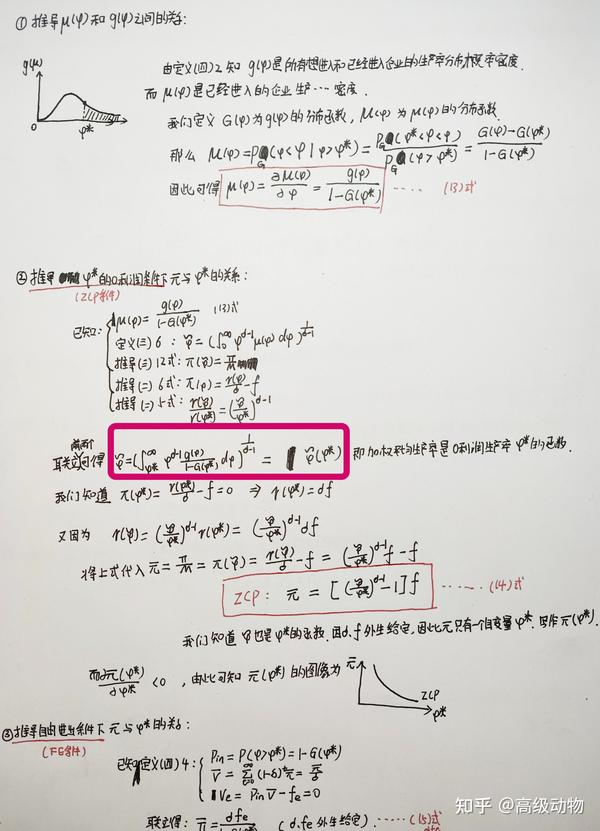 ① 推导μ(φ)和g(φ)之间的关系:
g(μ)
0 φ*
由定义(四)2知 g(φ)是所有想进入和已经进入企业的生产率分布概率密度.
而 μ(φ)是已经进入的企业生产…密度.
我们定义 G(φ)为g(φ)的分布函数, M(φ)为μ(φ)的分布函数.
那么 M(φ)=P_G(φ<φ|φ>φ*)= P_G(φ*<φ<φ)/P_G(φ>φ*) = (G(φ)-G(φ*))/(1-G(φ*))
因此可得 μ(φ)= ∂M(φ)/∂φ = g(φ)/(1-G(φ*)) ····· (13)式
② 推导 φ*的0利润条件下π̄与φ*的关系:
(ZCP条件)
已知: μ(φ)= g(φ)/(1-G(φ*)) (13)式
定义(三)6: φ̃=(∫₀^∞ φ^(σ-1) μ(φ)dφ)^(1/(σ-1))
推导(三)12式: π(φ̃)=π/M
推导(二)6式: π(φ)= r(φ)/σ -f
推导(二)5式: r(φ̃)/r(φ*)=(φ̃/φ*)^(σ-1)
前两个
联立可得 φ̃=(∫_φ*^∞ φ^(σ-1) g(φ)/(1-G(φ*)) dφ)^(1/(σ-1)) = φ̃(φ*) 即加权平均生产率是0利润生产率φ*的函数.
我们知道 π(φ*)= r(φ*)/σ -f=0 ⇒ r(φ*)=σf
又因为 r(φ̃)=(φ̃/φ*)^(σ-1) r(φ*)=(φ̃/φ*)^(σ-1) σf
将上式代入 π̄= π/M = π(φ̃)= r(φ̃)/σ -f = (φ̃/φ*)^(σ-1) f-f
ZCP: π̄ = [(φ̃/φ*)^(σ-1) -1]f ······ (14)式
我们知道 φ̃也是φ*的函数. 因σ.f外生给定,因此π̄只有一个自变量φ*. 写作π̄(φ*).
而 dπ̄(φ*)/dφ* <0 , 由此可知 π̄(φ*)的图像为
π̄
ZCP
φ*
③推导自由进出条件下π̄与φ*的关系:
(FE条件)
已知定义(四)4: Pin = P(φ>φ*)=1-G(φ*)
V̄ = Σ_(t=0)^∞ (1-δ)^t π̄= π̄/δ
Ve = Pin V̄ - fe =0
联立得: π̄= δfe/(1-G(φ*)) (δ.fe外生给定). ····· (15)式
知乎 @高级动物